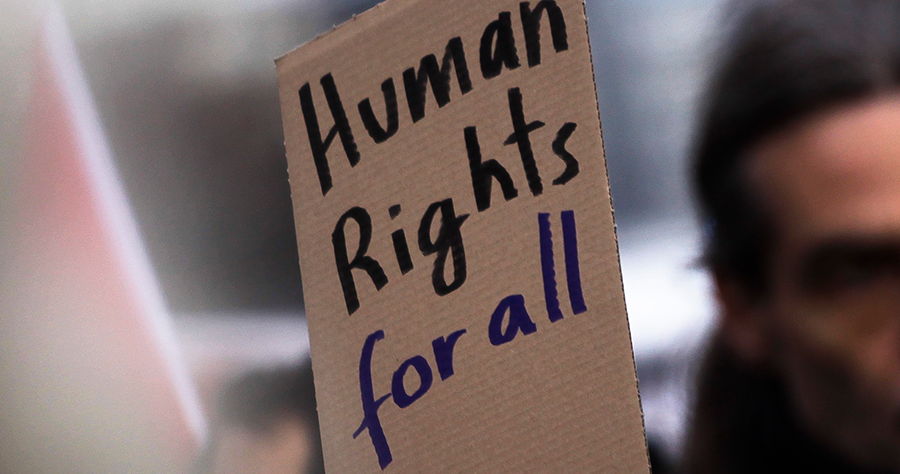 Human
Rights
for all